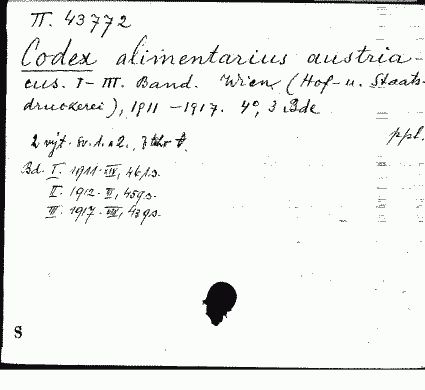 II. 43772
Codex alimentarius austria-
cus. I-III. Band. Wien (Hof- u. Staats-
druckerei), 1911-1917. 4°, 3 Bde
2 výt. sv. 1. a 2.,
ppl.
Bd. I. 1911. XIV, 461 s.
II. 1912. II, 459 s.
III. 1917. VIII, 439 s.
S